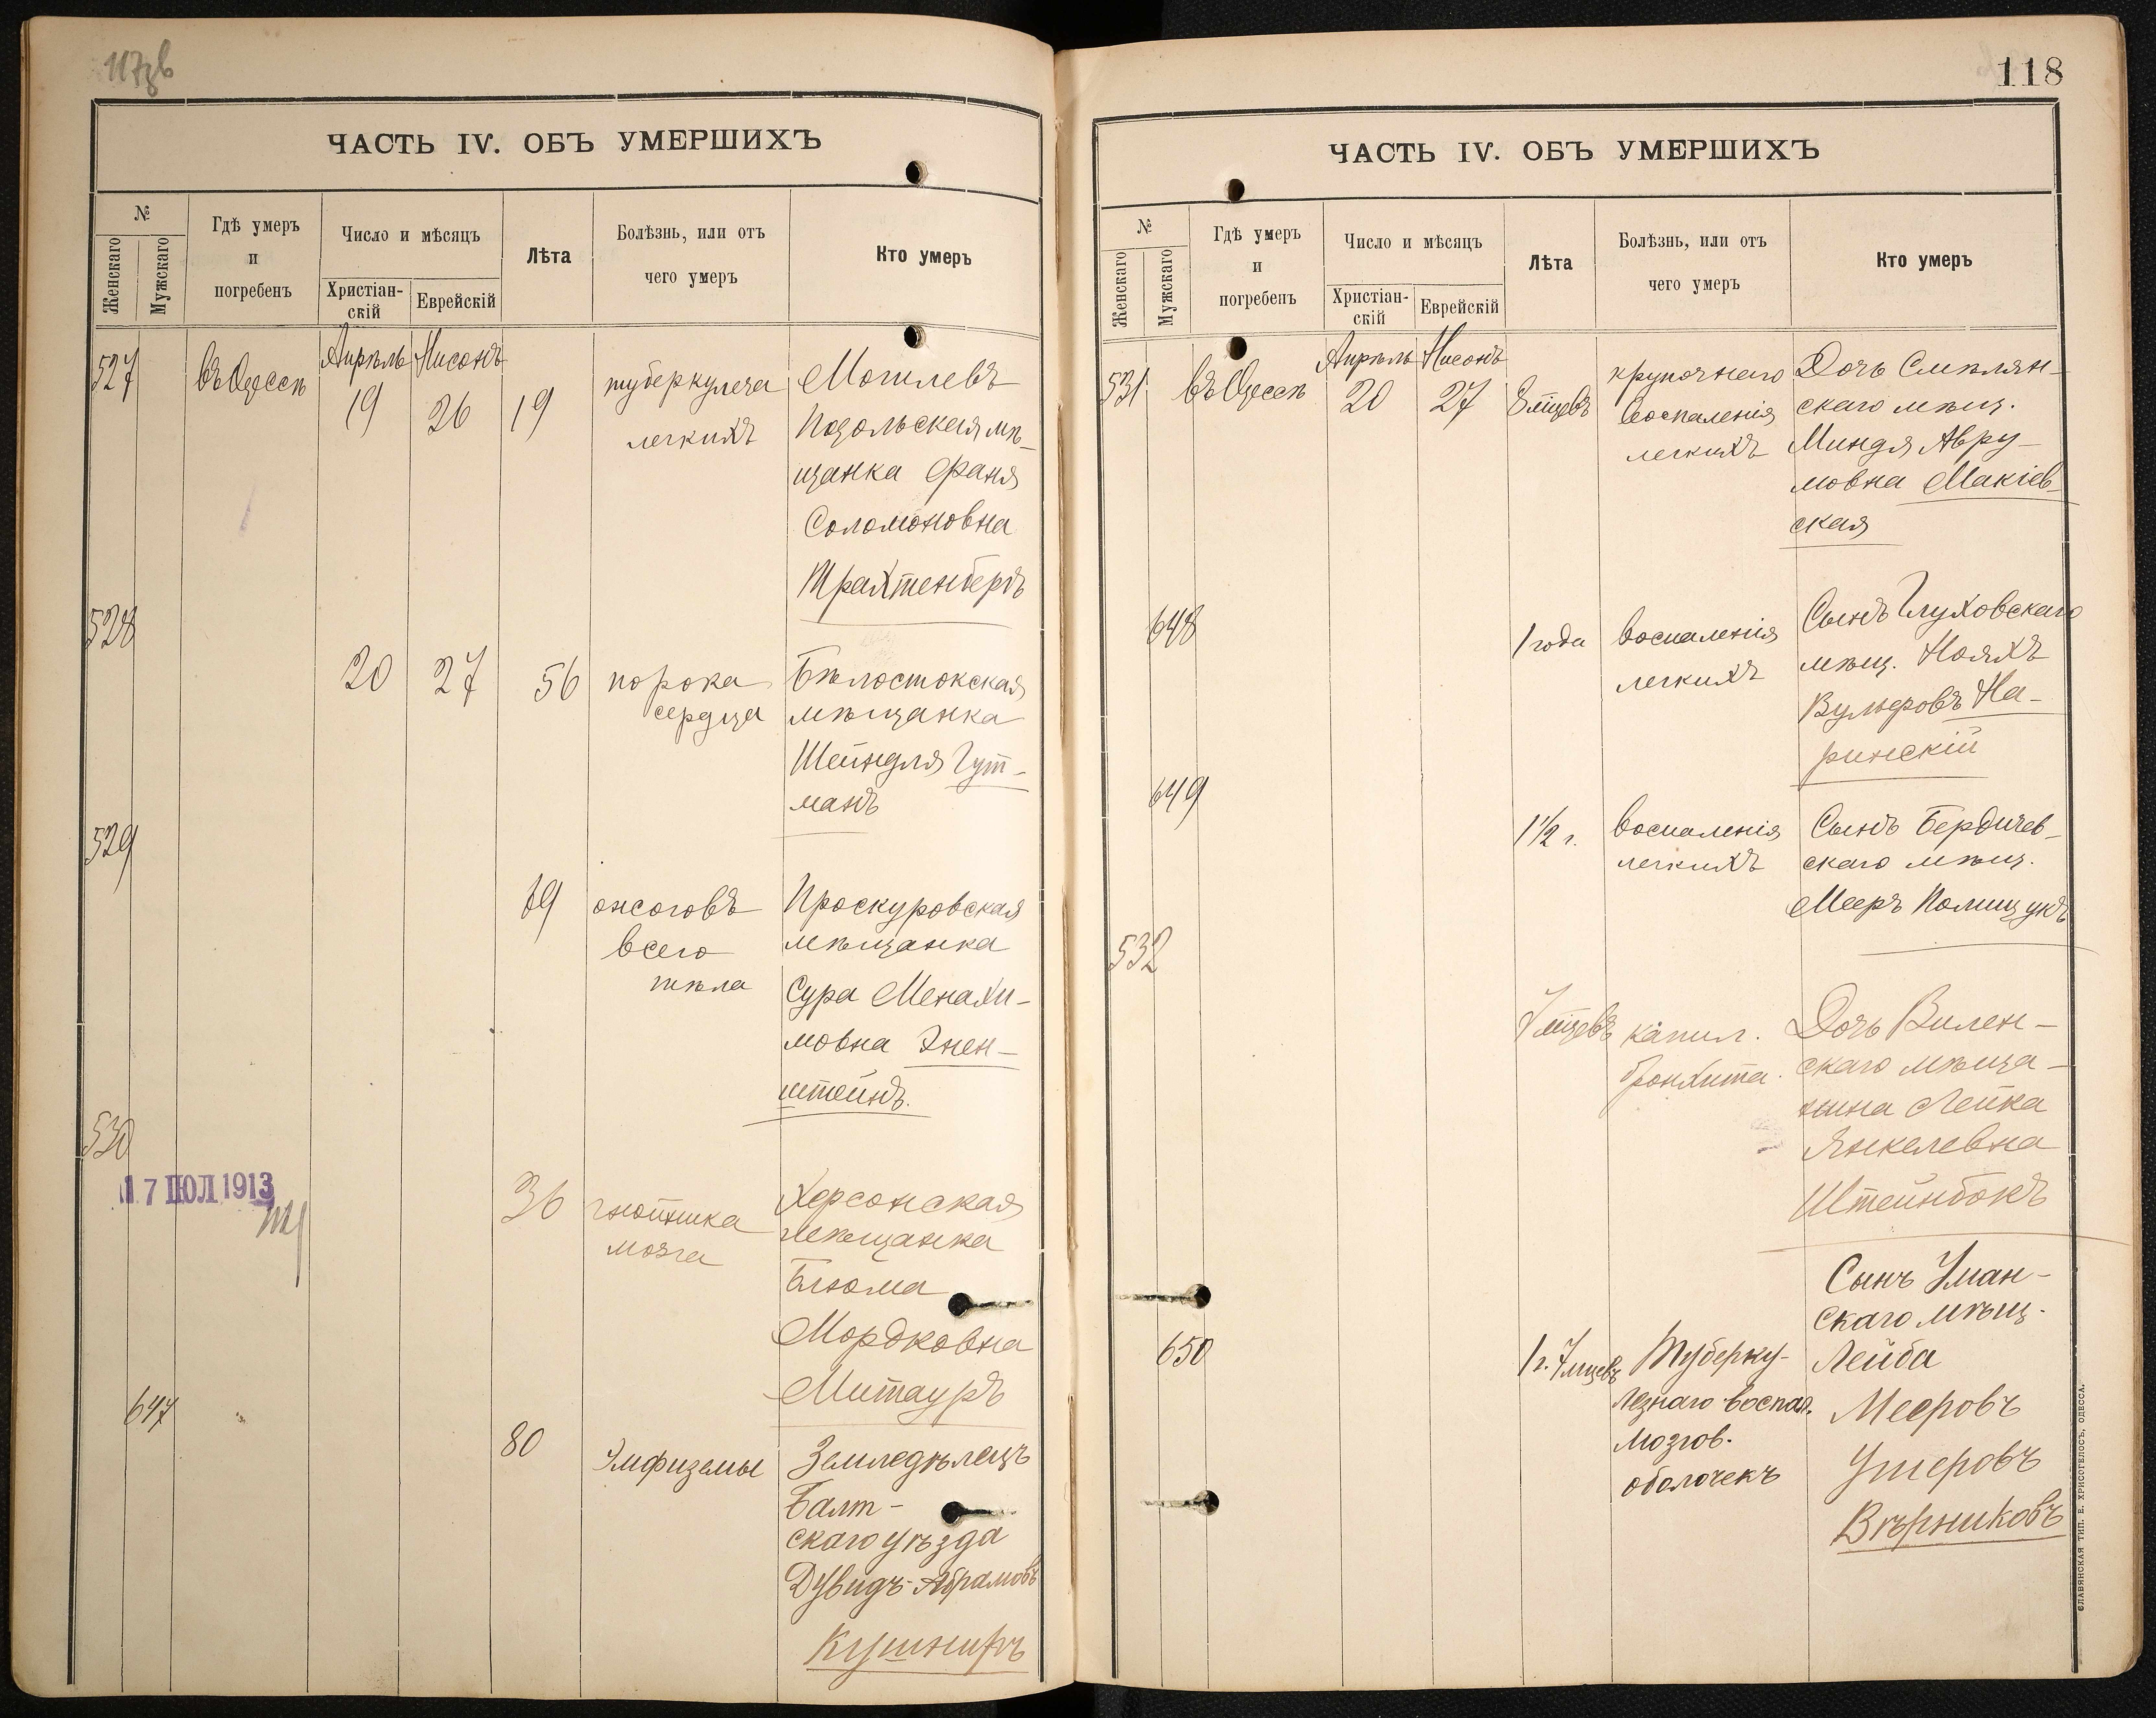 117зв
ЧАСТЬ IV. ОБЪ УМЕРШИХЪ
№
Женскаго
Мужскаго
Гдѣ умеръ
и
погребенъ
Число и мѣсяцъ
Христіан-
скій
Еврейскій
Лѣта
Болѣзнь, или отъ
чего умеръ
Кто умеръ
527
въ Одессѣ
Апрѣль
19
Нисонъ
26
19
туберкулеза
легкихъ
Могилевъ
Подольская мѣ-
щанка Фаня
Соломоновна
Трахтенбергъ
528
20
27
56
порока
сердца
Бѣлостокская
мѣщанка
Шейндля Гут-
манъ
529
19
ожоговъ
всего
тѣла
Проскуровская
мѣщанка
Сура Менахи-
мовна Энен-
штейнъ.
530
17 ІЮЛ 1913
36
гнойника
мозга
Херсонская
мѣщанка
Блюма
Мордковна
Митауръ
647
80
Эмфиземы
Земледѣлецъ
Балт-
скаго уѣзда
Дувидъ-Абрамовъ
Кушниръ
118
ЧАСТЬ IV. ОБЪ УМЕРШИХЪ
№
Женскаго
Мужскаго
Гдѣ умеръ
и
погребенъ
Число и мѣсяцъ
Христіан-
скій
Еврейскій
Лѣта
Болѣзнь, или отъ
чего умеръ
Кто умеръ
531
въ Одессѣ
Апрѣль
20
Нисонъ
27
8 мѣцевъ
крупознаго
воспаленія
легкихъ
Дочь Смѣлян-
скаго мѣщ.
Миндя Авру-
мовна Макіев-
ская
648
1 года
воспаленія
легкихъ
Сынъ Глуховскаго
мѣщ. Нояхъ
Вульфовъ На-
ринскій
649
1 1/2 г.
воспаленія
легкихъ
Сынъ Бердичев-
скаго мѣщ.
Мееръ Полищукъ
532
7 мѣцевъ
капил.
бронхита.
Дочь Вилен-
скаго мѣща-
нина Лейка
Янкелевна
Штейнбокъ
650
1 г. 7 мцевъ
Туберку-
лезнаго воспал.
мозгов.
оболочекъ
Сынъ Уман-
скаго мѣщ.
Лейба
Мееровъ
Ушеровъ
Вѣрниковъ
СЛАВЯНСКАЯ ТИП. Е. ХРИСОГЕЛОСЪ, ОДЕССА.